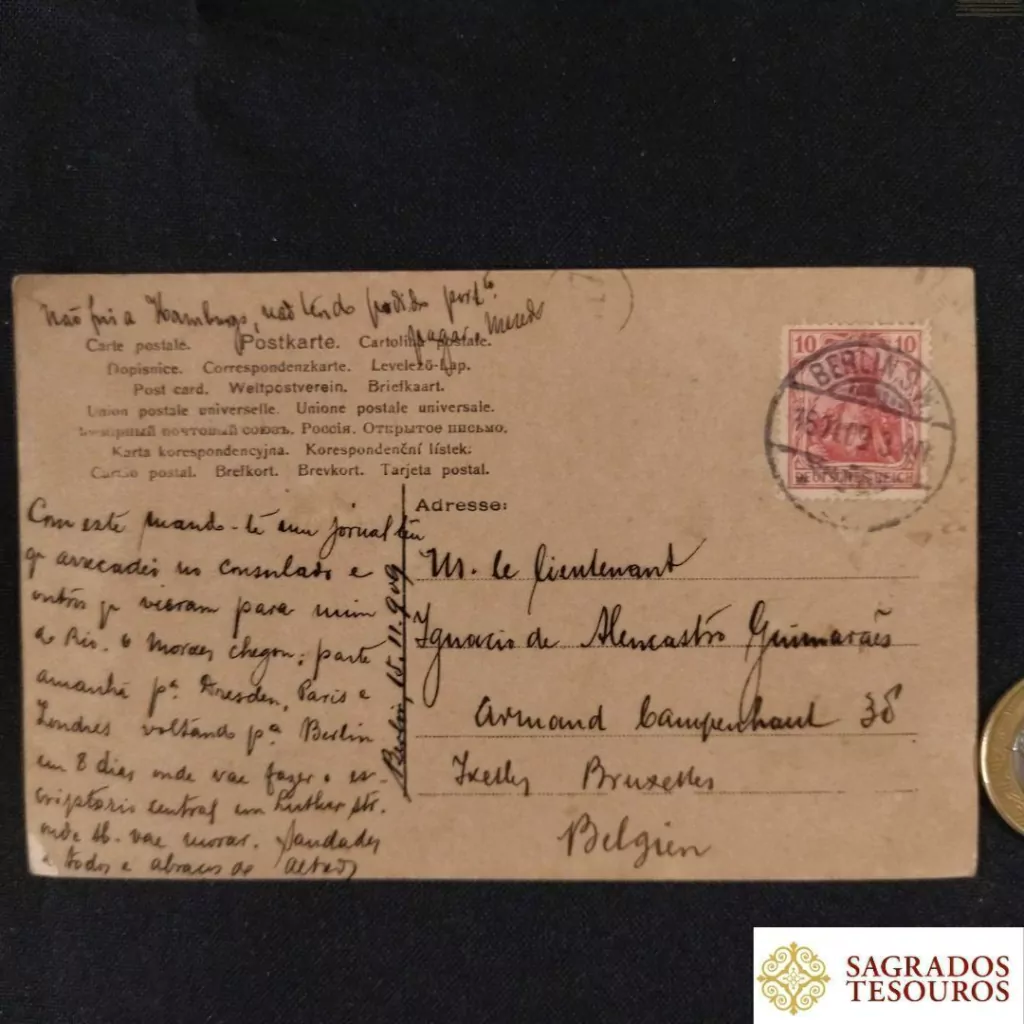 Não fui a Hamburgo, não tendo podido port.
pagar.
Carte postale. Postkarte. Cartolina postale.
Dopisnice. Correspondenzkarte. Levelező-Lap.
Post card. Weltpostverein. Briefkaart.
Union postale universelle. Unione postale universale.
Всемірный почтовый союзъ. Россія. Открытое письмо.
Karta korespondencyjna. Korespondenční lístek.
Cartão postal. Brefkort. Brevkort. Tarjeta postal.
Com este mando-te um jornal teu
q arrecadei no consulado e
outros q vieram para mim
do Rio. O Moraes chegou; parte
amanhã pª. Dresden, Paris e
Londres voltando pª Berlin
em 8 dias onde vae fazer o es-
criptorio central em Luther str.
onde tb. vae morar. Saudades
a todos e abraços do
Berlin, 15.11.909
10 10
DEUTSCHES REICH
BERLIN.S.W.
15.11.09
Adresse:
M. le lieutenant
Ignacio de Alencastro Guimarães
Armand Campenhout 38
Ixelles Bruxelles
Belgien
SAGRADOS
TESOUROS